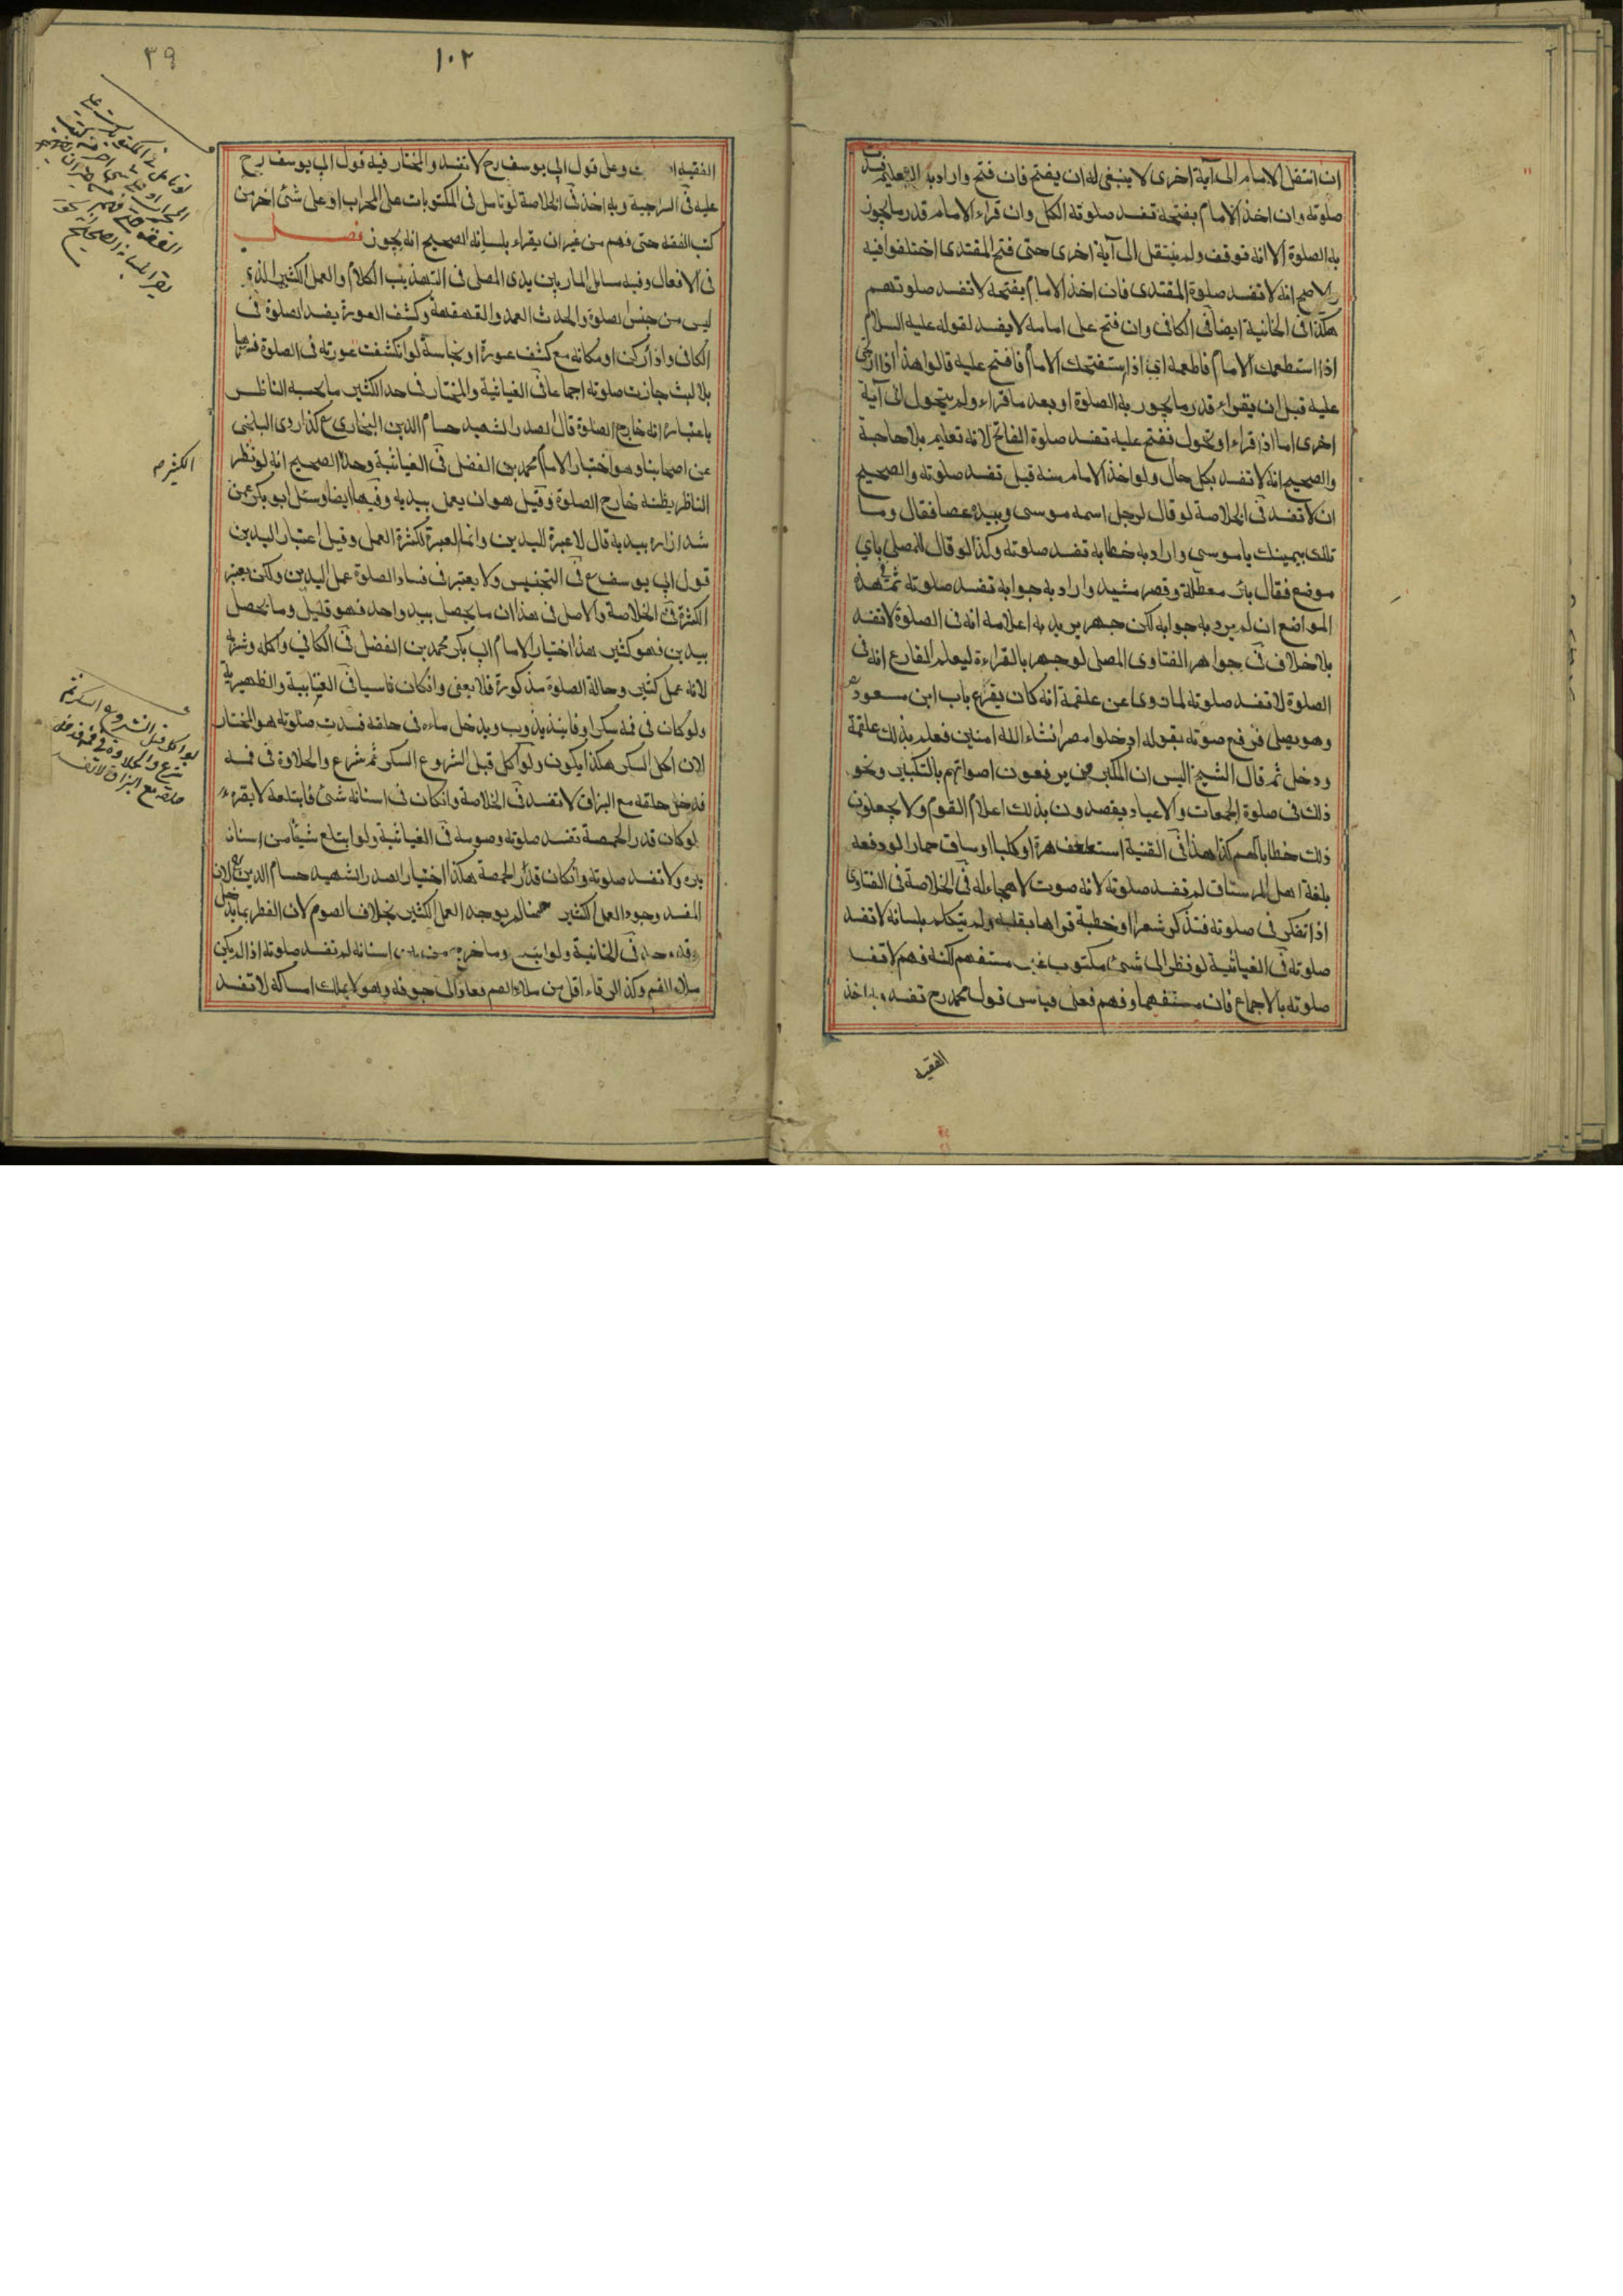 ان انتقل الامام الى آية اخرى لا ينبغى له ان يفتح فان فتح واراد به التعليم فسدت
صلوته وان اخذ الامام بفتحه تفسد صلوته الكل وان قراء الامام قدر ما يجوز
به الصلوة الا انه توقف ولم ينتقل الى آية اخرى حتى فتح المقتدى اختلفوا فيه
والاصح انه لا تفسد صلوة المقتدى فان اخذ الامام بفتحه لا تفسد صلوتهم
هكذا فى الخانية ايضا فى الكافى وان فتح على امامه لا يفسد لقوله عليه السلام
اذا استطعمك الامام فاطعمه اى اذا استفتحك الامام فافتح عليه قالوا هذا اذا ارتج
عليه قبل ان يقراء قدر ما يجوز به الصلوة او بعد ما قراء ولم يتحول الى آية
اخرى اما اذا قراء او تحول ففتح عليه تفسد صلوة الفاتح لانه تعليم بلا حاجة
والصحيح انه لا تفسد بكل حال ولو اخذ الامام منه قيل تفسد صلوته والصحيح
ان لا تفسد فى الخلاصة لو قال لرجل اسمه موسى وبيده عصا فقال وما
تلك بيمينك يا موسى واراد به خطابه تفسد صلوته وكذا لو قال للمصلى باى
موضع فقال بئر معطلة وقصر مشيد واراد به جوابه تفسد صلوته ثم فى هذه
المواضع ان لم يرد به جوابه لكن جهر يريد به اعلامه انه فى الصلوة لا تفسد
بلا خلاف فى جواهر الفتاوى المصلى لو جهر بالقراءة ليعلم القارع انه فى
الصلوة لا تفسد صلوته لما روى عن علقمة انه كان يقرع باب ابن مسعود
وهو يصلى فرفع صوته بقوله ادخلوا مصر انشاء الله امنين فعلم بذلك علقمة
ودخل ثم قال الشيخ اليس ان المكبرين يرفعون اصواتهم بالتكبير ونحو
ذلك فى صلوة الجمعات والاعياد يقصدون بذلك اعلام القوم ولا يجعلون
ذلك خطابا لهم كذا هذا فى القنية استعطف هرة او كلبا او ساق حمارا لو دفعه
بلغة اهل الرستاق لم تفسد صلوته لانه صوت لا هجاء له فى الخلاصة فى الفتاوى
اذا تفكر فى صلوته فتذكر شعرا او خطبة قراها بقلبه ولم يتكلم بلسانه لا تفسد
صلوته فى الغياثية لو نظر الى شئ مكتوب غير مستفهم لكنه فهم لا تفسد
صلوته بالاجماع فان مستفهما وفهم فعلى قياس قول محمد رح تفسد وبه اخذ
الفقيه
١٠٢
٣٩
الفقيه وعلى قول ابى يوسف رح لا تفسد والمختار فيه قول ابى يوسف رح
عليه فى السراجية وبه اخذ فى الخلاصة لو تامل فى المكتوبات على المحراب او على شئ اخر من
كتب الفقه حتى فهم من غير ان يقراء بلسانه الصحيح انه يجوز فصل
فى الافعال وفيه مسائل المار بين يدى المصلى فى التهذيب الكلام والعمل الكثير الذى
ليس من جنس الصلوة والحدث العمد والقهقهة وكشف العورة يفسد الصلوة فى
الكافى واذا ركن او مكانه مع كشف عورة او نجاسة لو انكشفت عورته فى الصلوة فسترها
بلا لبث جازت صلوته اجماعا فى الغياثية والمختار فى حد الكثير ما يحسبه الناظر
باعتباره انه خارج الصلوة قال الصدر الشهيد حسام الدين البخارى ع كذا روى البلخى
عن اصحابنا وهو اختيار الامام محمد بن الفضل فى الغياثية وحده الصحيح انه لو نظر
الناظر يظنه خارج الصلوة وقيل هو ان يعمل بيديه وفيها ايضا وسئل ابو بكر عمن
شد ازاره بيديه قال لا عبرة لليدين وانما العبرة لكثرة العمل وقيل اعتبار اليدين
قول ابى يوسف ع فى التجنيس ولا يعتبر فى فساد الصلوة عمل اليدين ولكن يعتبر
الكثرة فى الخلاصة والاصل فى هذا ان ما يحصل بيد واحد فهو قليل وما يحصل
بيدين فهو كثير هذا اختيار الامام ابى بكر محمد بن الفضل فى الكافى واكله وشربه
لانه عمل كثير وحالة الصلوة مذكورة فلا يعفى وانكان ناسيا فى العتابية والظهيرية
ولو كان فى فمه سكر او فانيذ يذوب ويدخل ماءه فى حلقه فسدت صلوته هو المختار
لان اكل السكر هكذا يكون ولو اكل قبل الشروع السكر ثم شرع والحلاوة فى فمه
فدخل حلقه مع البزاق لا تفسد فى الخلاصة وانكان فى اسنانه شئ فابتلعه لا يضره
لو كان قدر الحمصة تفسد صلوته وصومه فى الغياثية ولو ابتلع شيئا من اسنانه
ولا تفسد صلوته وانكان قدر الحمصة هكذا اختيار الصدر الشهيد حسام الدين ع لان
المفسد وجود العمل الكثير ههنا لم يوجد العمل الكثير بخلاف الصوم لان الفطر بما يدخل
فى الخانية ولو ابتلع وما خرج من بين اسنانه لم تفسد صلوته اذا لم يكن
ملاء الفم وكذا لو قاء اقل من ملاء الفم فعاد الى جوفه وهو لا يملك امساكه لا تفسد
الكثير
لو اكل قبل الشروع السكر ثم
شرع والحلاوة فى فمه فدخل
حلقه مع البزاق لا تفسد